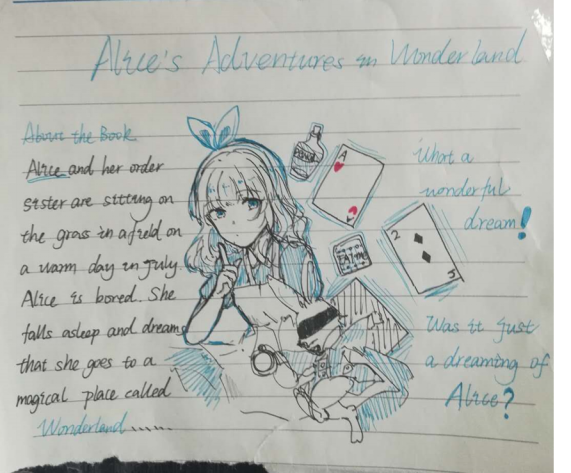 Alice's Adventures in Wonderland
About the Book
Alice and her order
sister are sitting on
the grass in a field on
a warm day in July
Alice is bored. She
falls asleep and dreams
that she goes to a
magical place called
Wonderland......
A
EAT ME
2
What a
wonderful
dream!
Was it just
a dreaming of
Alice?